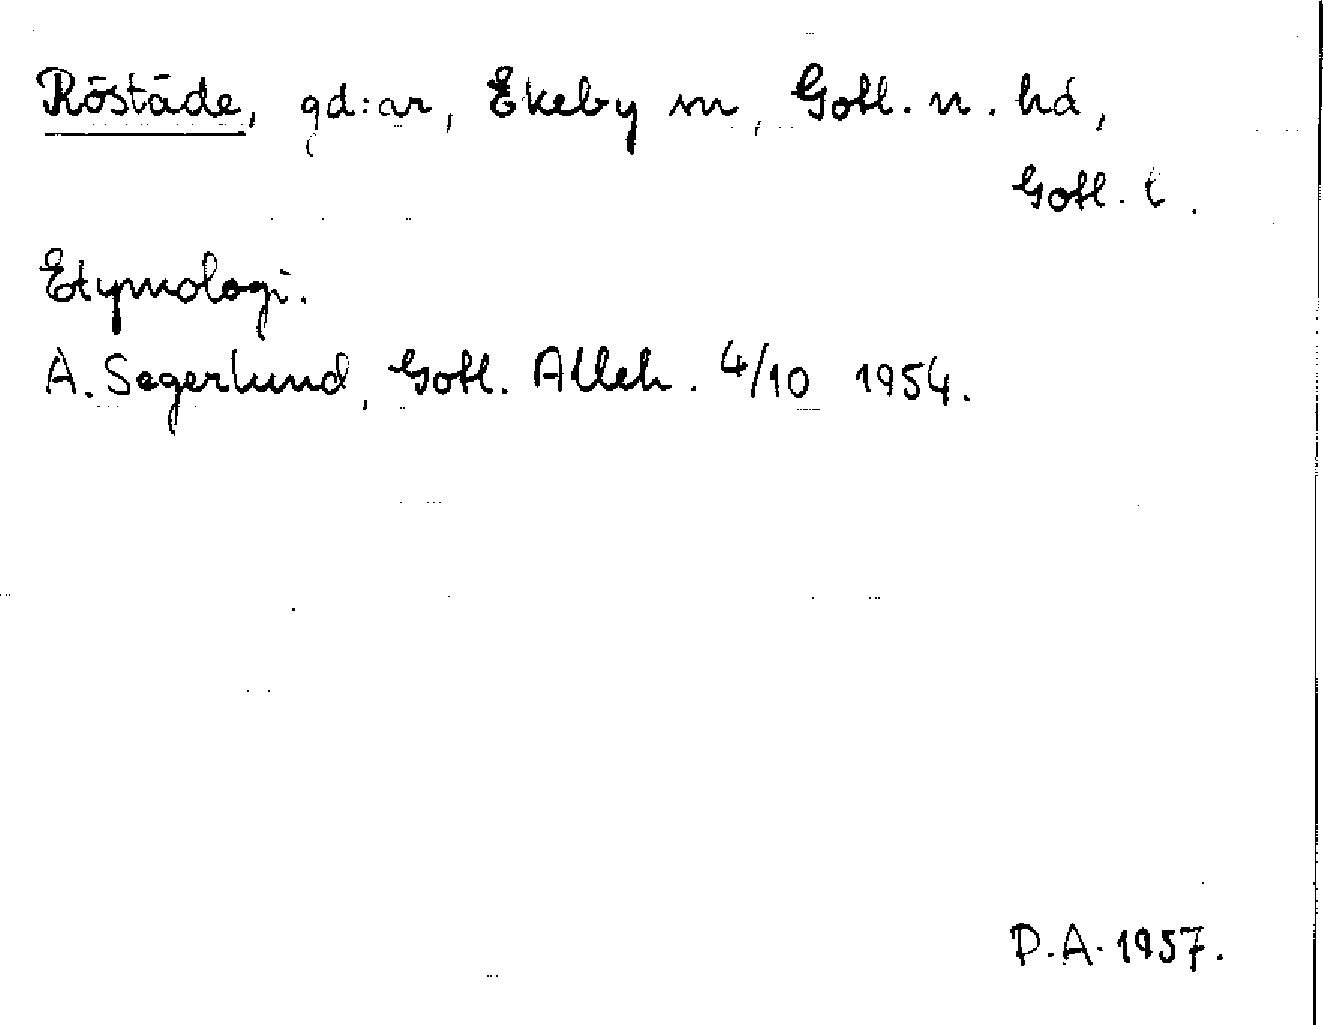 Röstäde, gd:ar, Ekeby sn, Gotl. n. hd,
Gotl. l.
Etymologi.
A. Segerlund, Gotl. Alleh. 4/10 1954.
P.A. 1957.